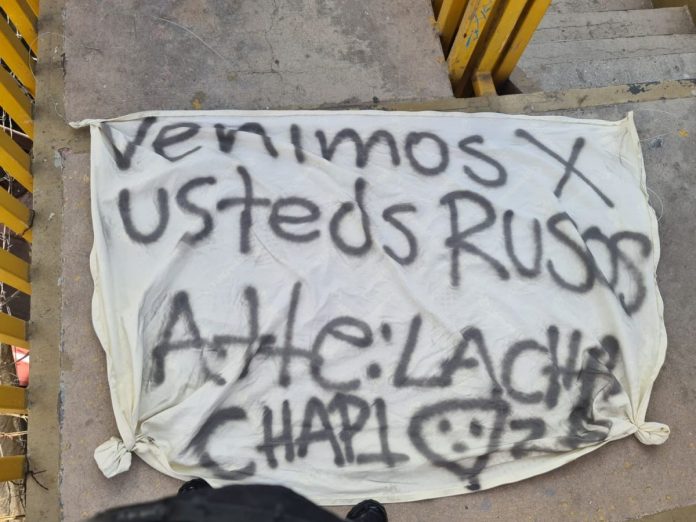 Venimos X
usteds Rusos
Atte: LA CHA
CHAP1